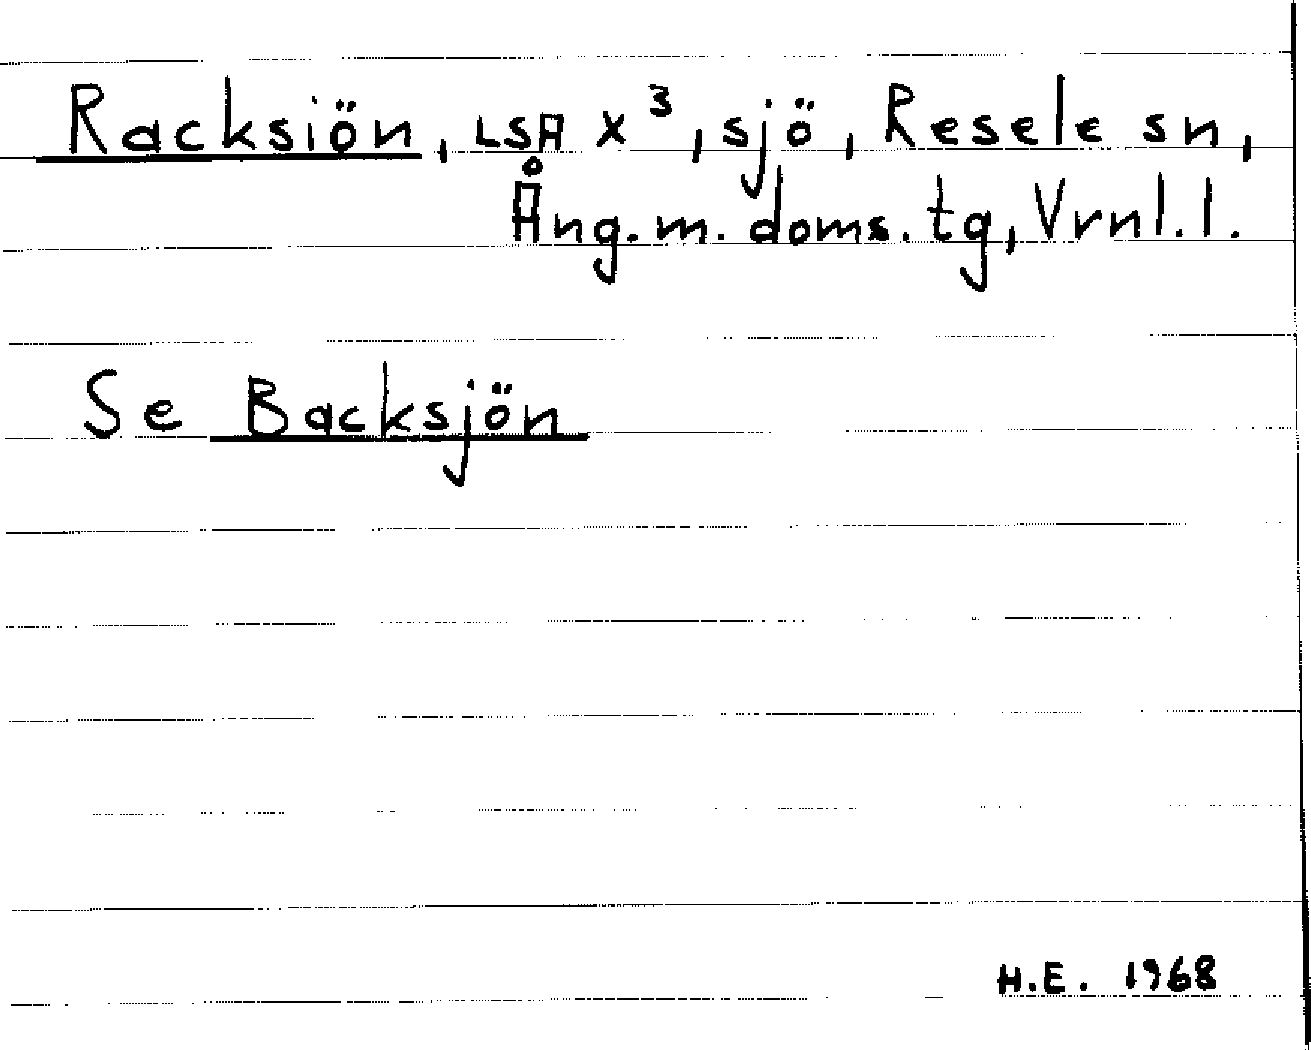 Racksiön, LSA X³, sjö, Resele sn,
Ång.m. doms. tg, Vrnl. l.
Se Backsjön
H.E. 1968